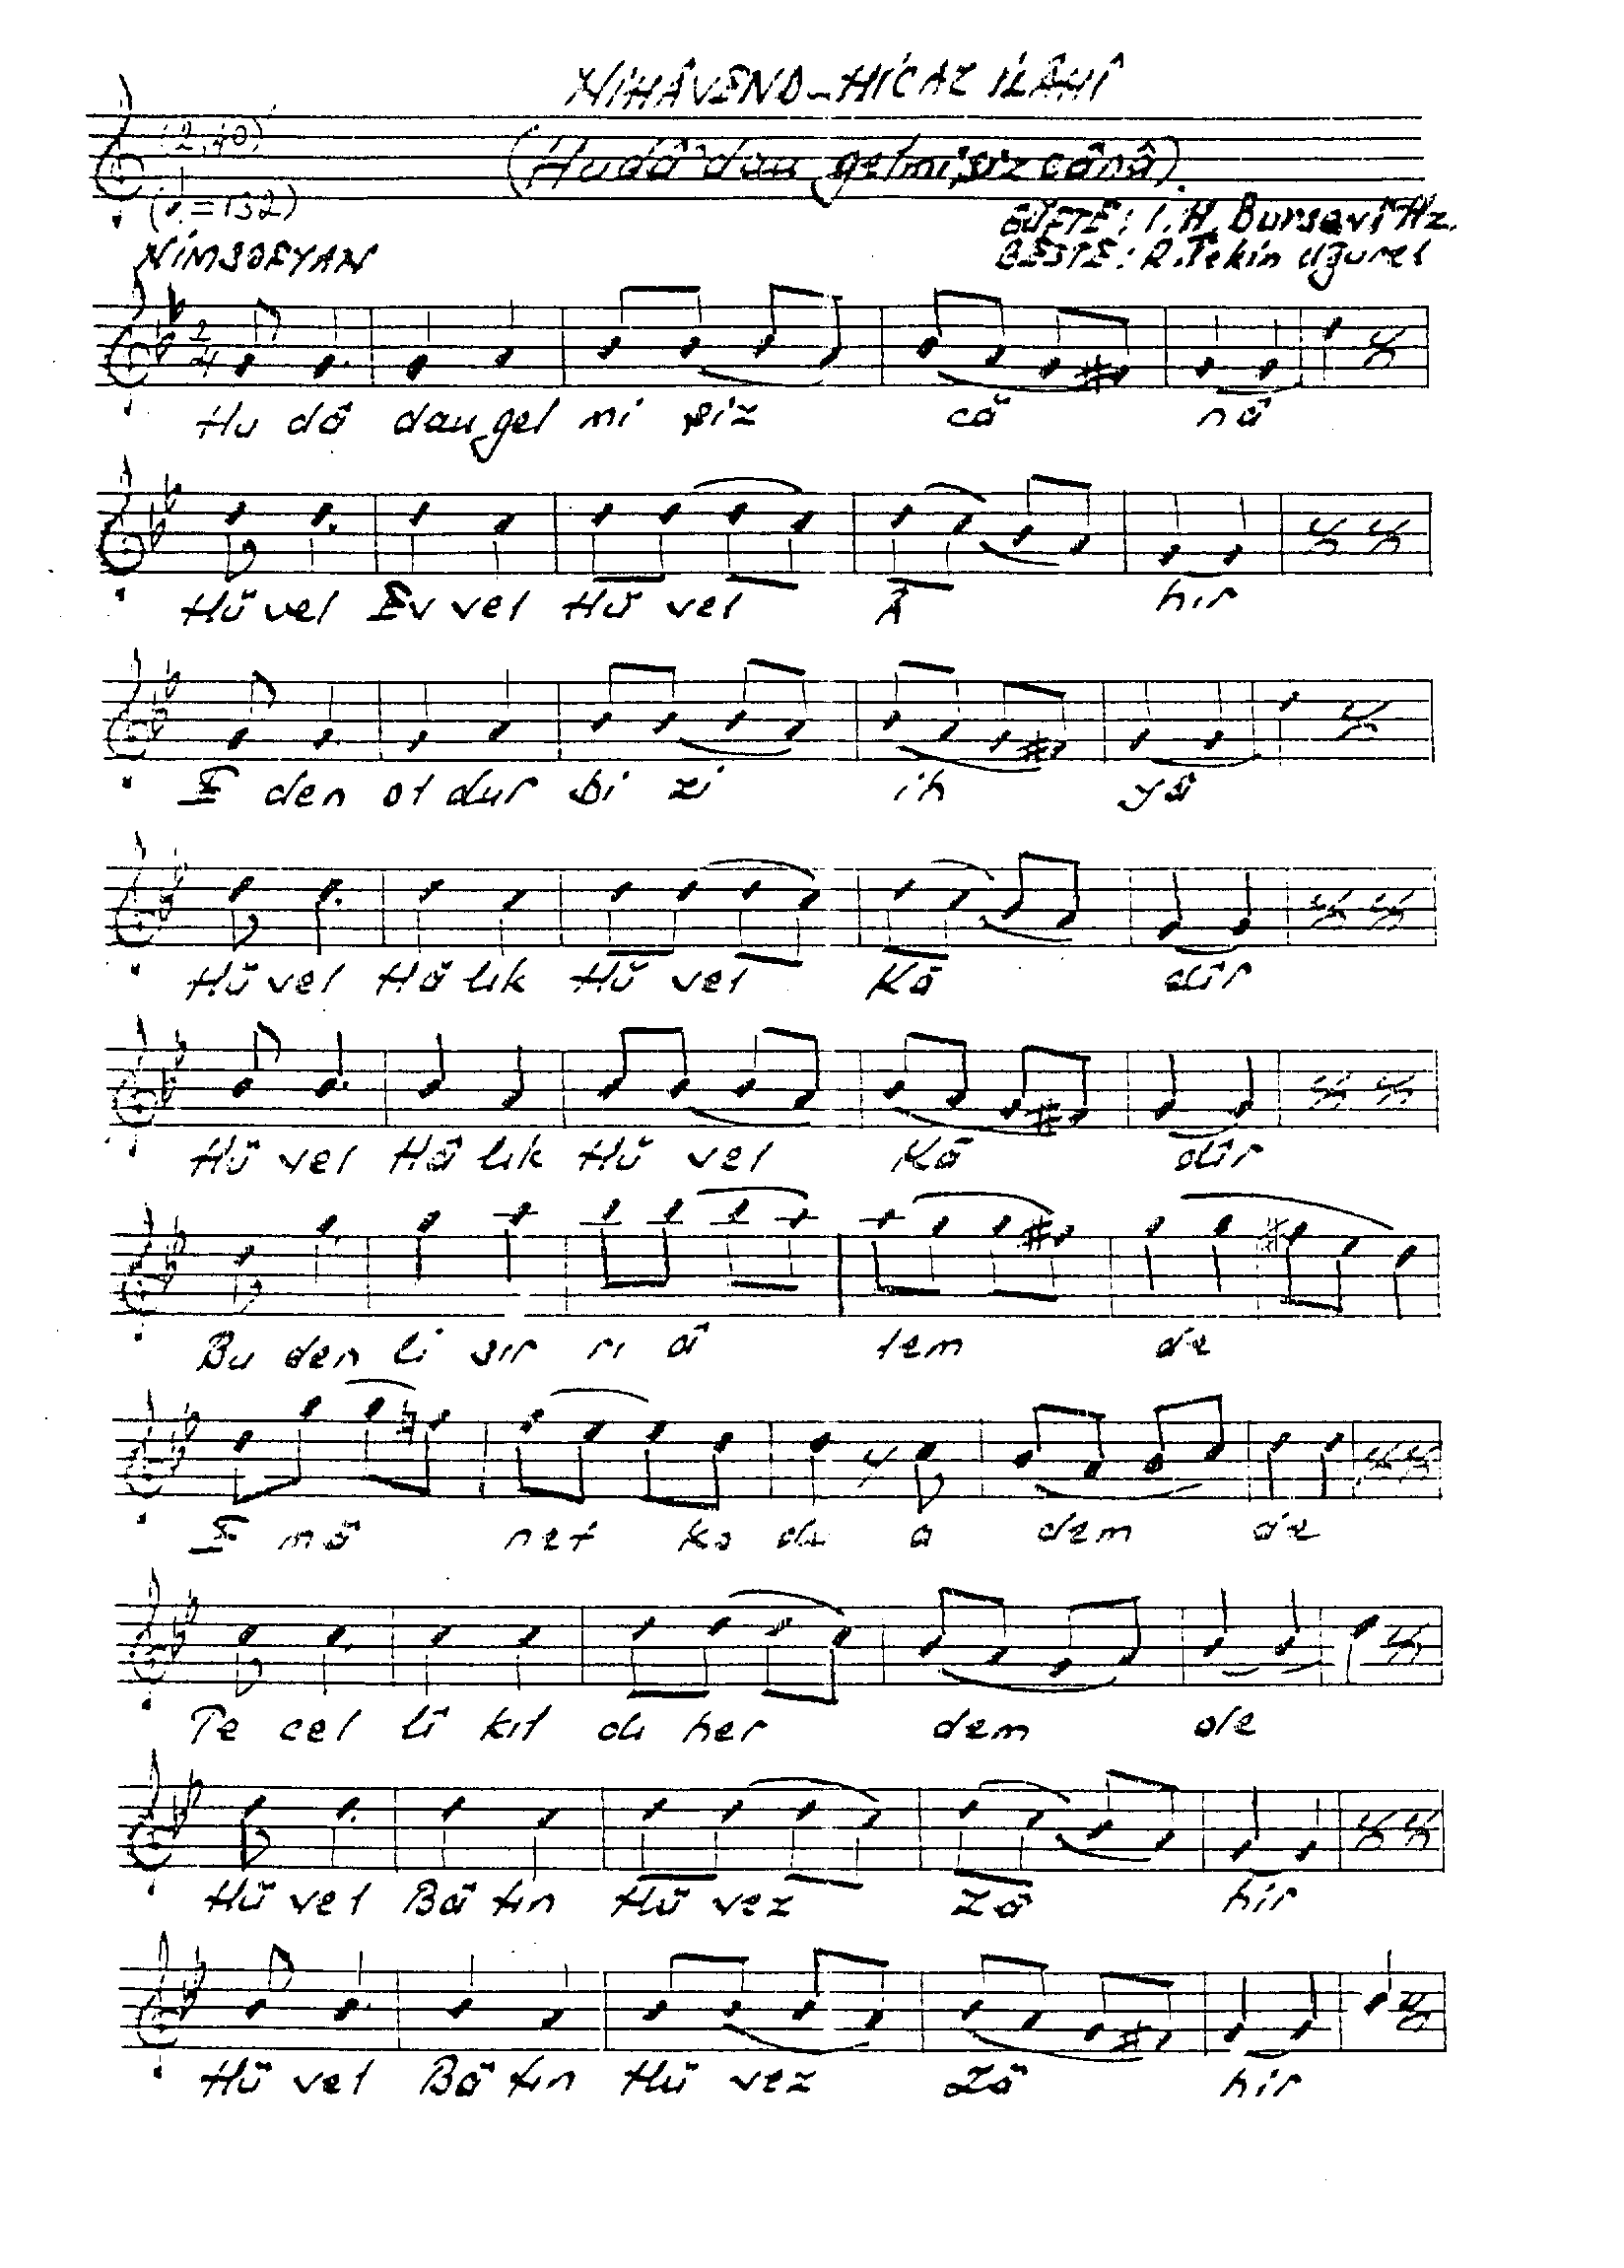 NİHÂVEND-HİCAZ İLÂHÎ
(2,40)
(Hudâ'dan gelmişiz cânâ)
(♩=132)
GÜFTE: İ.H. Bursavî Hz.
NİMSOFYAN
BESTE: R.Tekin Uğurel
2/4
Hu dâ dan gel mi şiz câ nâ
Hü vel Ev vel Hü vel Â hir
İ den ol dur bi zi ih yâ
Hü vel Hâ lık Hü vel Kâ dîr
Hü vel Hâ lık Hü vel Kâ dîr
Bu den li sır rı â lem de
E mâ net ko du a dem de
Te cel lî kıl dı her dem de
Hü vel Bâ tın Hü vez Zâ hir
Hü vel Bâ tın Hü vez Zâ hir